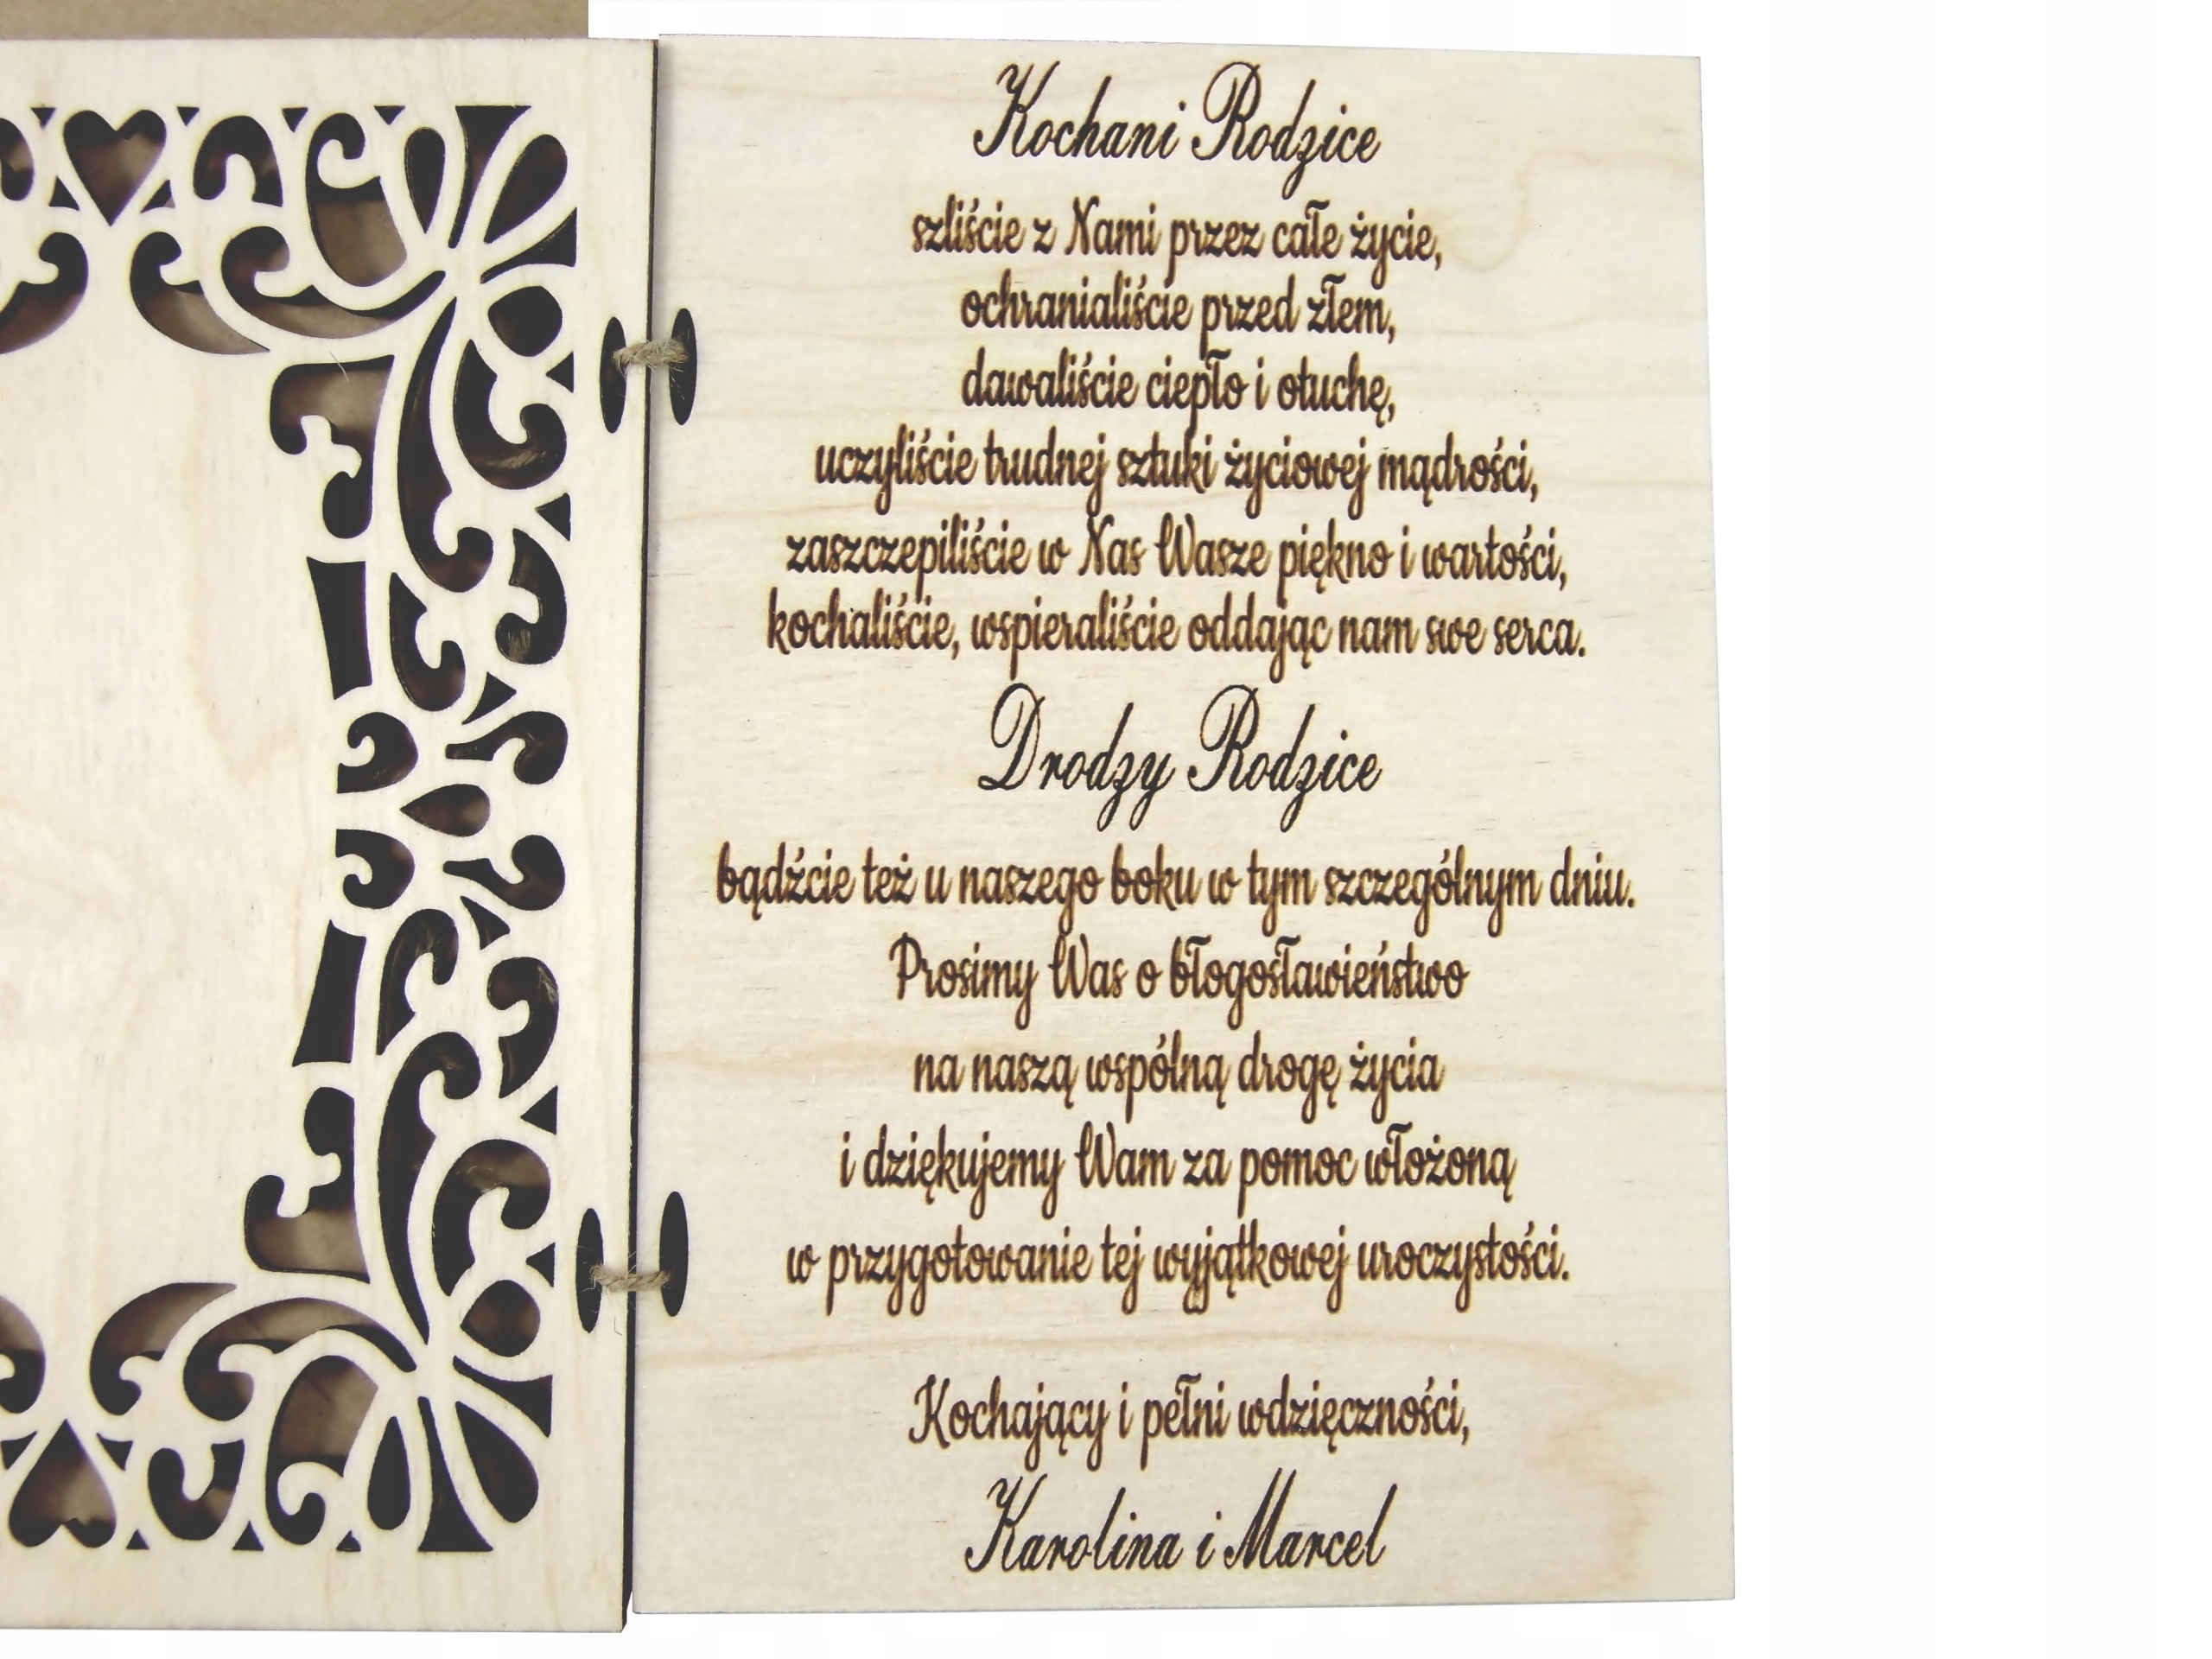 Kochani Rodzice
szliście z Nami przez całe życie,
ochranialiście przed złem,
dawaliście ciepło i otuchę,
uczyliście trudnej sztuki życiowej mądrości,
zaszczepiliście w Nas Wasze piękno i wartości,
kochaliście, wspieraliście oddając nam swe serca.
Drodzy Rodzice
bądźcie też u naszego boku w tym szczególnym dniu.
Prosimy Was o błogosławieństwo
na naszą wspólną drogę życia
i dziękujemy Wam za pomoc włożoną
w przygotowanie tej wyjątkowej uroczystości.
Kochający i pełni wdzięczności,
Karolina i Marcel